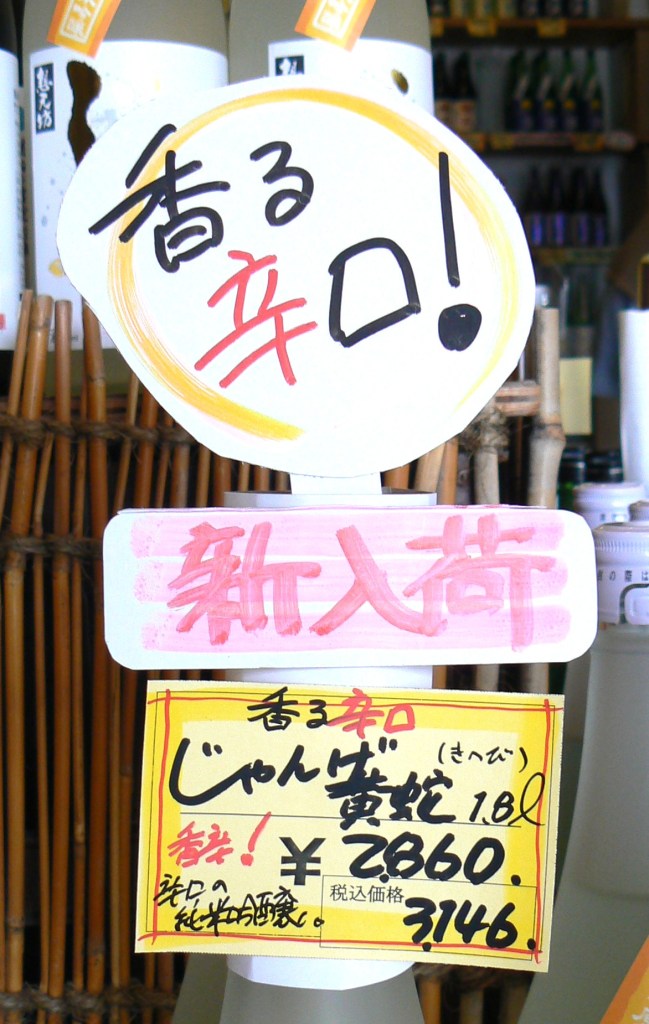 香る
辛口!
新入荷
香る辛口
じゃんげ
(きへび)
黄蛇 1.8ℓ
香辛!
¥2,860.
辛口の
純米吟醸。
税込価格
3,146.